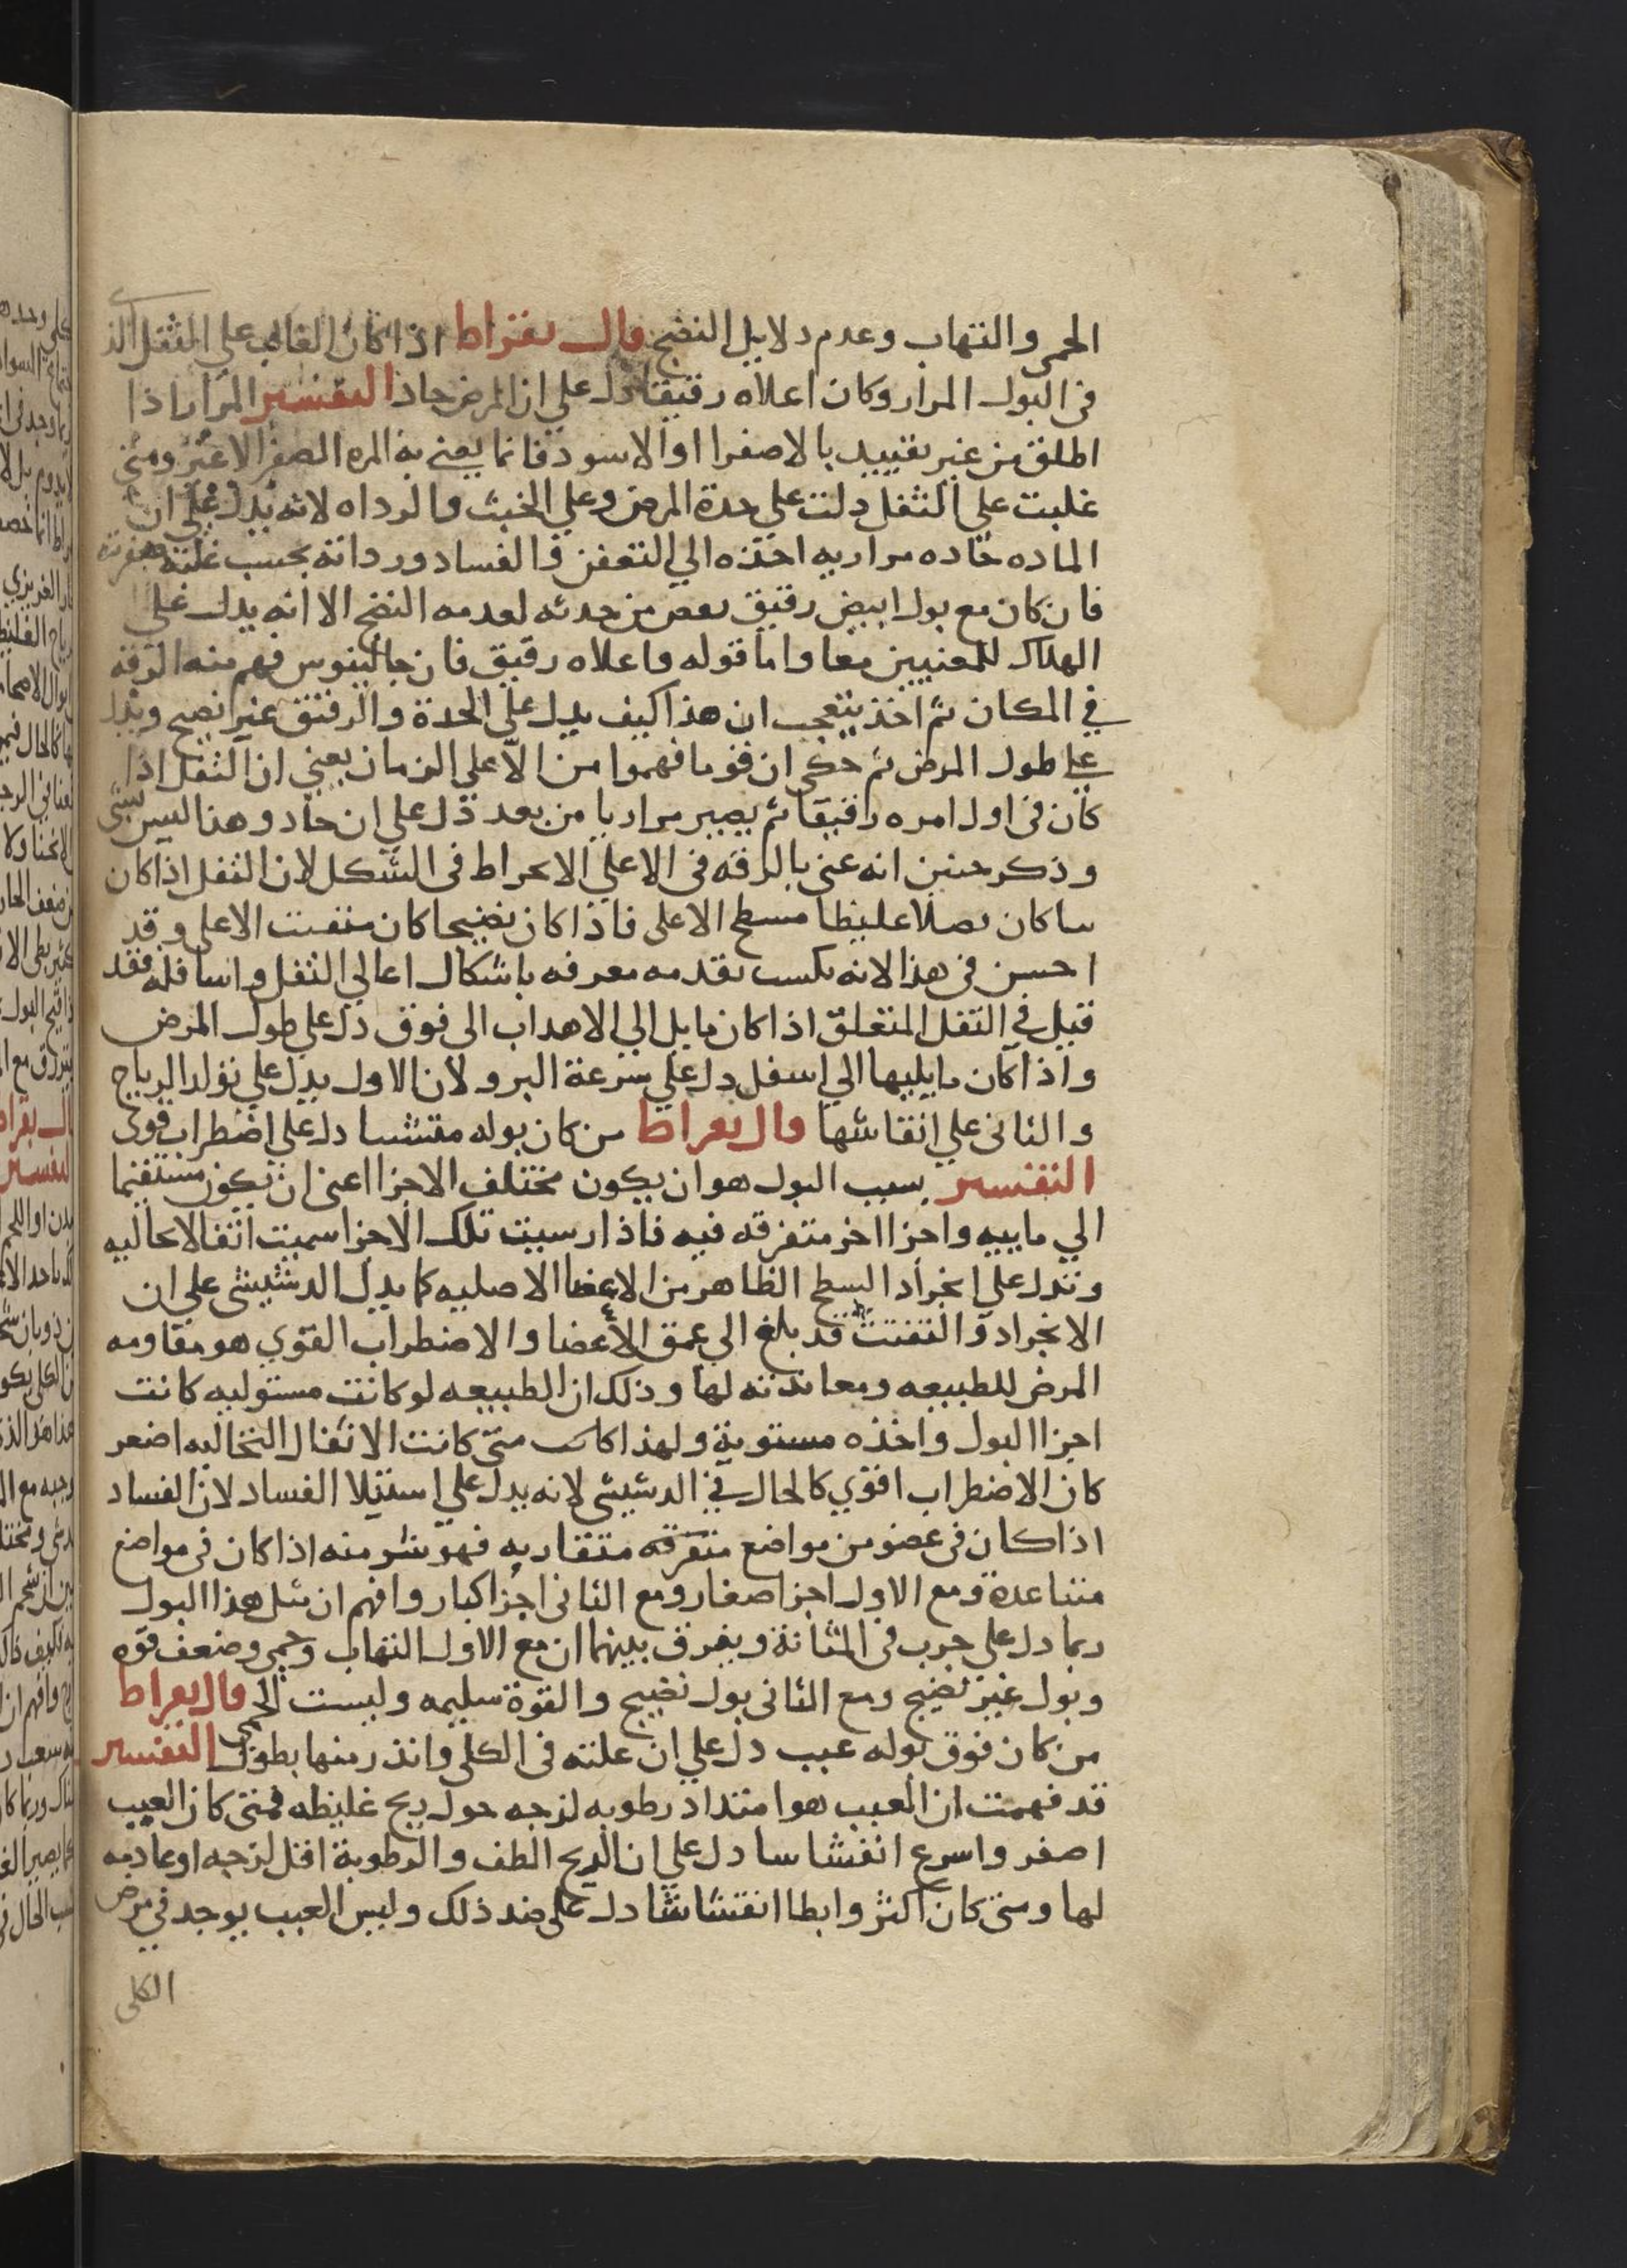 الحمى والتهاب وعدم دلايل النضج قال بقراط اذا كان الغالب على الثفل الذى
فى البول المرار وكان اعلاه رقيقا دل على ان المرض حاد التفسير المرار اذا
اطلق من غير تقييد بالاصفرا او الاسود فانما يعنى به المره الصفرا لا غير ومتى
غلبت على الثفل دلت على حدة المرض وعلى الخبث والرداه لانه يدل على ان
الماده حاده مراريه اخذه الى التعفن والفساد ورداته بحسب غلبة صفرته
فان كان مع بول ابيض رقيق نقص من حدته لعدمه النضج الا انه يدل على
الهلاك للمعنيين معا واما قوله واعلاه رقيق فان جالينوس فهم منه الرقه
في المكان ثم اخذ يتعجب ان هذا كيف يدل على الحدة والرقيق غير نضيج ويدل
على طول المرض ثم حكى ان قوما فهموا من الاعلى الزمان يعني ان الثفل اذا
كان فى اول امره رقيقا ثم يصير مراريا من بعد دل على ان حاد وهذا ليس بشى
وذكر حنين انه عنى بالرقه فى الاعلى الانخراط فى الشكل لان الثفل اذا كان
ساكان نصلا غليظا مسطح الاعلى فاذا كان نضيحا كان متفتت الاعلى وقد
احسن فى هذا لانه تكسب تقدمه معرفه باشكال اعالي الثفل واسافله فقد
قيل في الثفل المتعلق اذا كان مايل الي الاهداب الى فوق دل على طول المرض
واذا كان مايليها الي اسفل دل على سرعة البرو لان الاول يدل على تولد الرياح
والثانى علي انقاشها قال بقراط من كان بوله متشتتا دل على اضطراب قوى
التفسير بسبب البول هو ان يكون مختلف الاجزا اعنى ان يكون مستقيما
الي ماييه واجزا اخر متفرقه فيه فاذا رسبت تلك الاجزا سميت اثفالا نخاليه
وتدل على انجراد السطح الظاهر من الاعضا الاصليه كما يدل الدشيشى على ان
الانجراد والتفتت قد بلغ الي عمق الاعضا والاضطراب القوي هو مقاومه
المرض للطبيعه ومعاندته لها وذلك ان الطبيعه لو كانت مستوليه كانت
اجزا البول واخذه مستوية ولهذا كانت متى كانت الاثفال النخاليه اصغر
كان الاضطراب اقوي كالحال في الدشيشى لانه يدل على استيلا الفساد لان الفساد
اذا كان فى عضو من مواضع متفرقه متقاربه فهو شر منه اذا كان فى مواضع
متباعدة ومع الاول اجزا صغار ومع الثانى اجزا كبار وافهم ان مثل هذا البول
ربما دل على جرب فى المثانة ويفرق بينهما ان مع الاول التهاب وحمى وضعف قوه
وبول غير نضيج ومع الثانى بول نضيج والقوة سليمه وليست الحمى قال بقراط
من كان فوق بوله عبب دل على ان علته فى الكلى وانذر منها بطول التفسير
قد فهمت ان العبب هو امتداد رطوبه لزجه حول ريح غليظه فمتى كان العبب
اصغر واسرع انفشاسا دل على ان الريح الطف والرطوبة اقل لزجه او عادمه
لها ومتى كان اكثر وابطا انفشاشا دل على ضد ذلك وليس العبب يوجد في مرض
الكلى